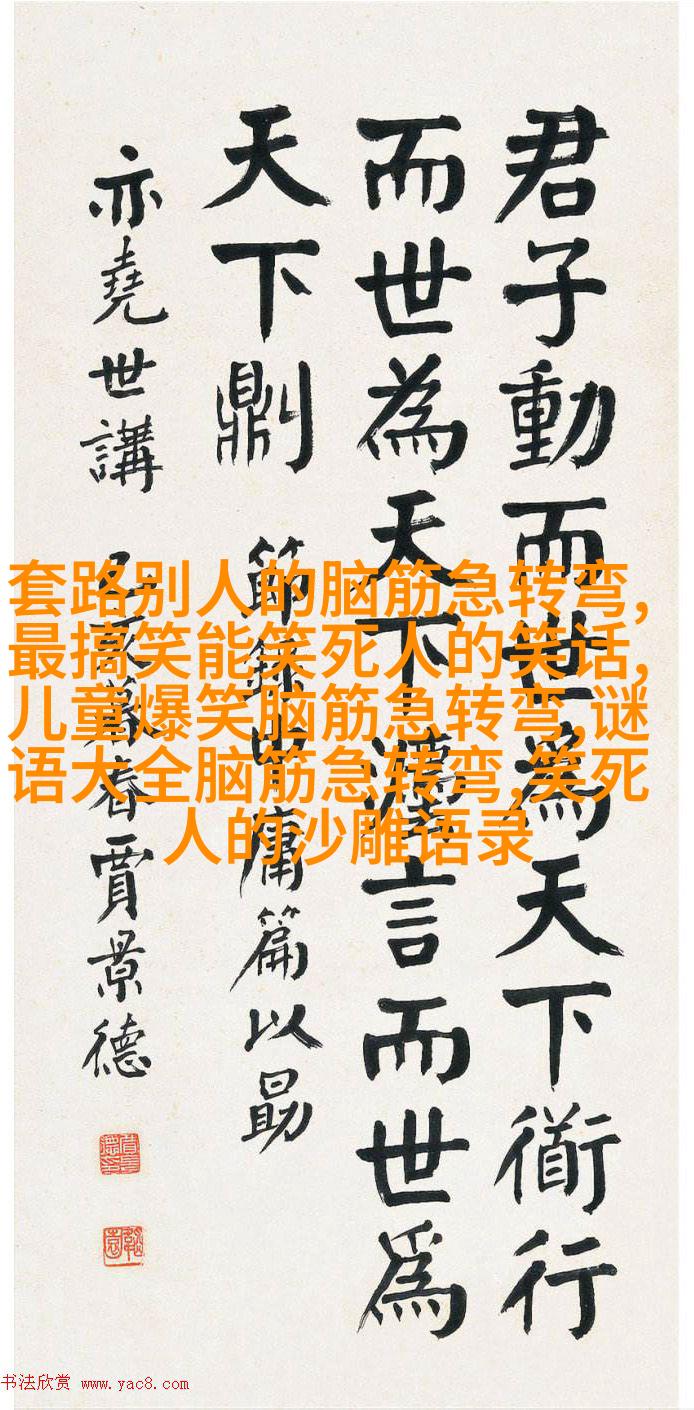 君子動而世為天下衜行
而世為天下灋言而世為
天下𠟭 節錄中庸篇以勗
亦堯世講 春賈景德
套路别人的脑筋急转弯,
最搞笑能笑死人的笑话,
儿童爆笑脑筋急转弯,谜
语大全脑筋急转弯,笑死
人的沙雕语录
书法欣赏 www.yac8.com